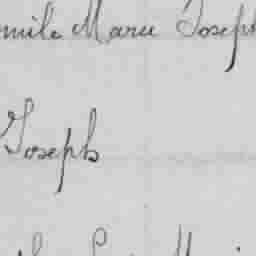 mile Marie Joseph
Joseph